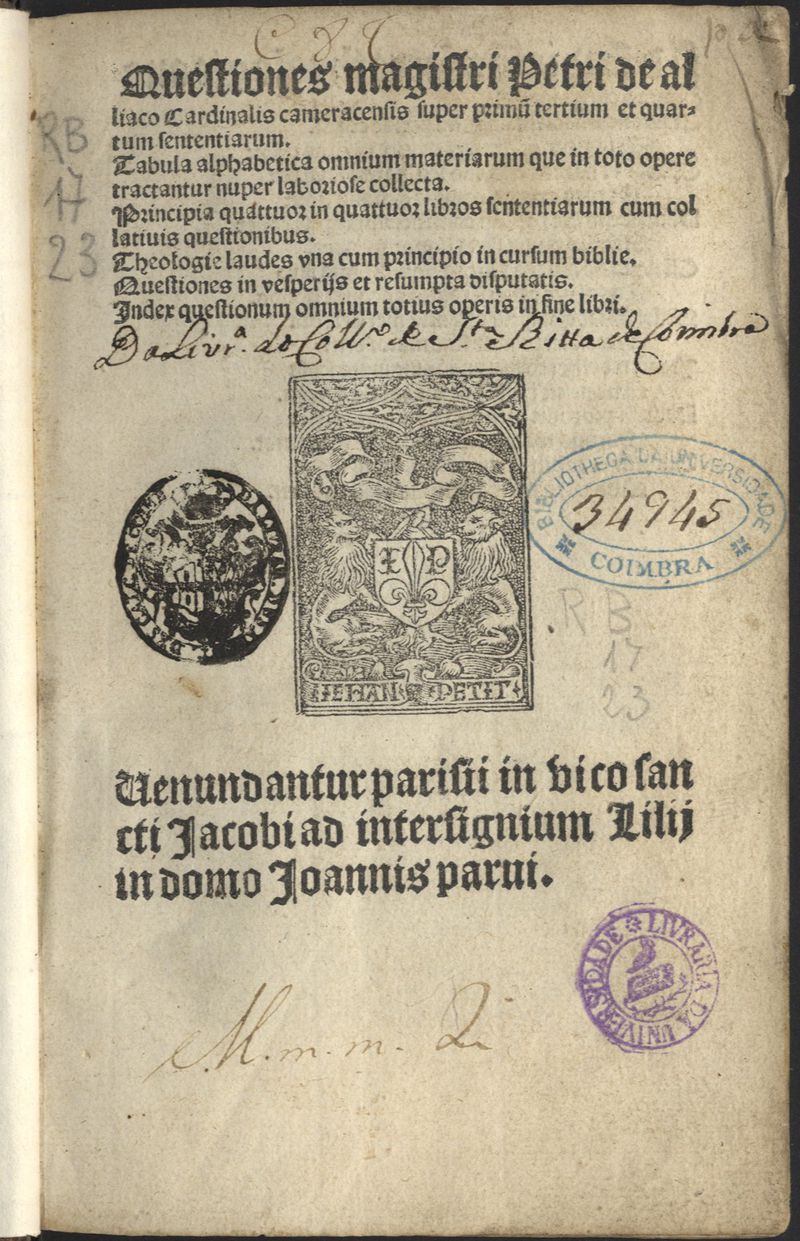 Questiones magistri Petri de al
liaco Cardinalis cameracensis super primū tertium et quar-
tum sententiarum.
Tabula alphabetica omnium materiarum que in toto opere
tractantur nuper laboriose collecta.
Principia quattuor in quattuor libros sententiarum cum col
latiuis questionibus.
Theologie laudes vna cum principio in cursum biblie.
Questiones in vesperijs et resumpta disputatis.
Index questionum omnium totius operis in fine libri.
RB
17
23
Da Livr.ª do Coll.º de S.ta Ritta de Coimbra
I P
IEHAN PETIT
BIBLIOTHECA DA UNIVERSIDADE
34945
COIMBRA
RB
17
23
Uenundantur parisii in vico san
cti Jacobi ad intersignium Lilij
in domo Joannis parui.
LIVRARIA DA UNIVERSIDADE
M.m.m.